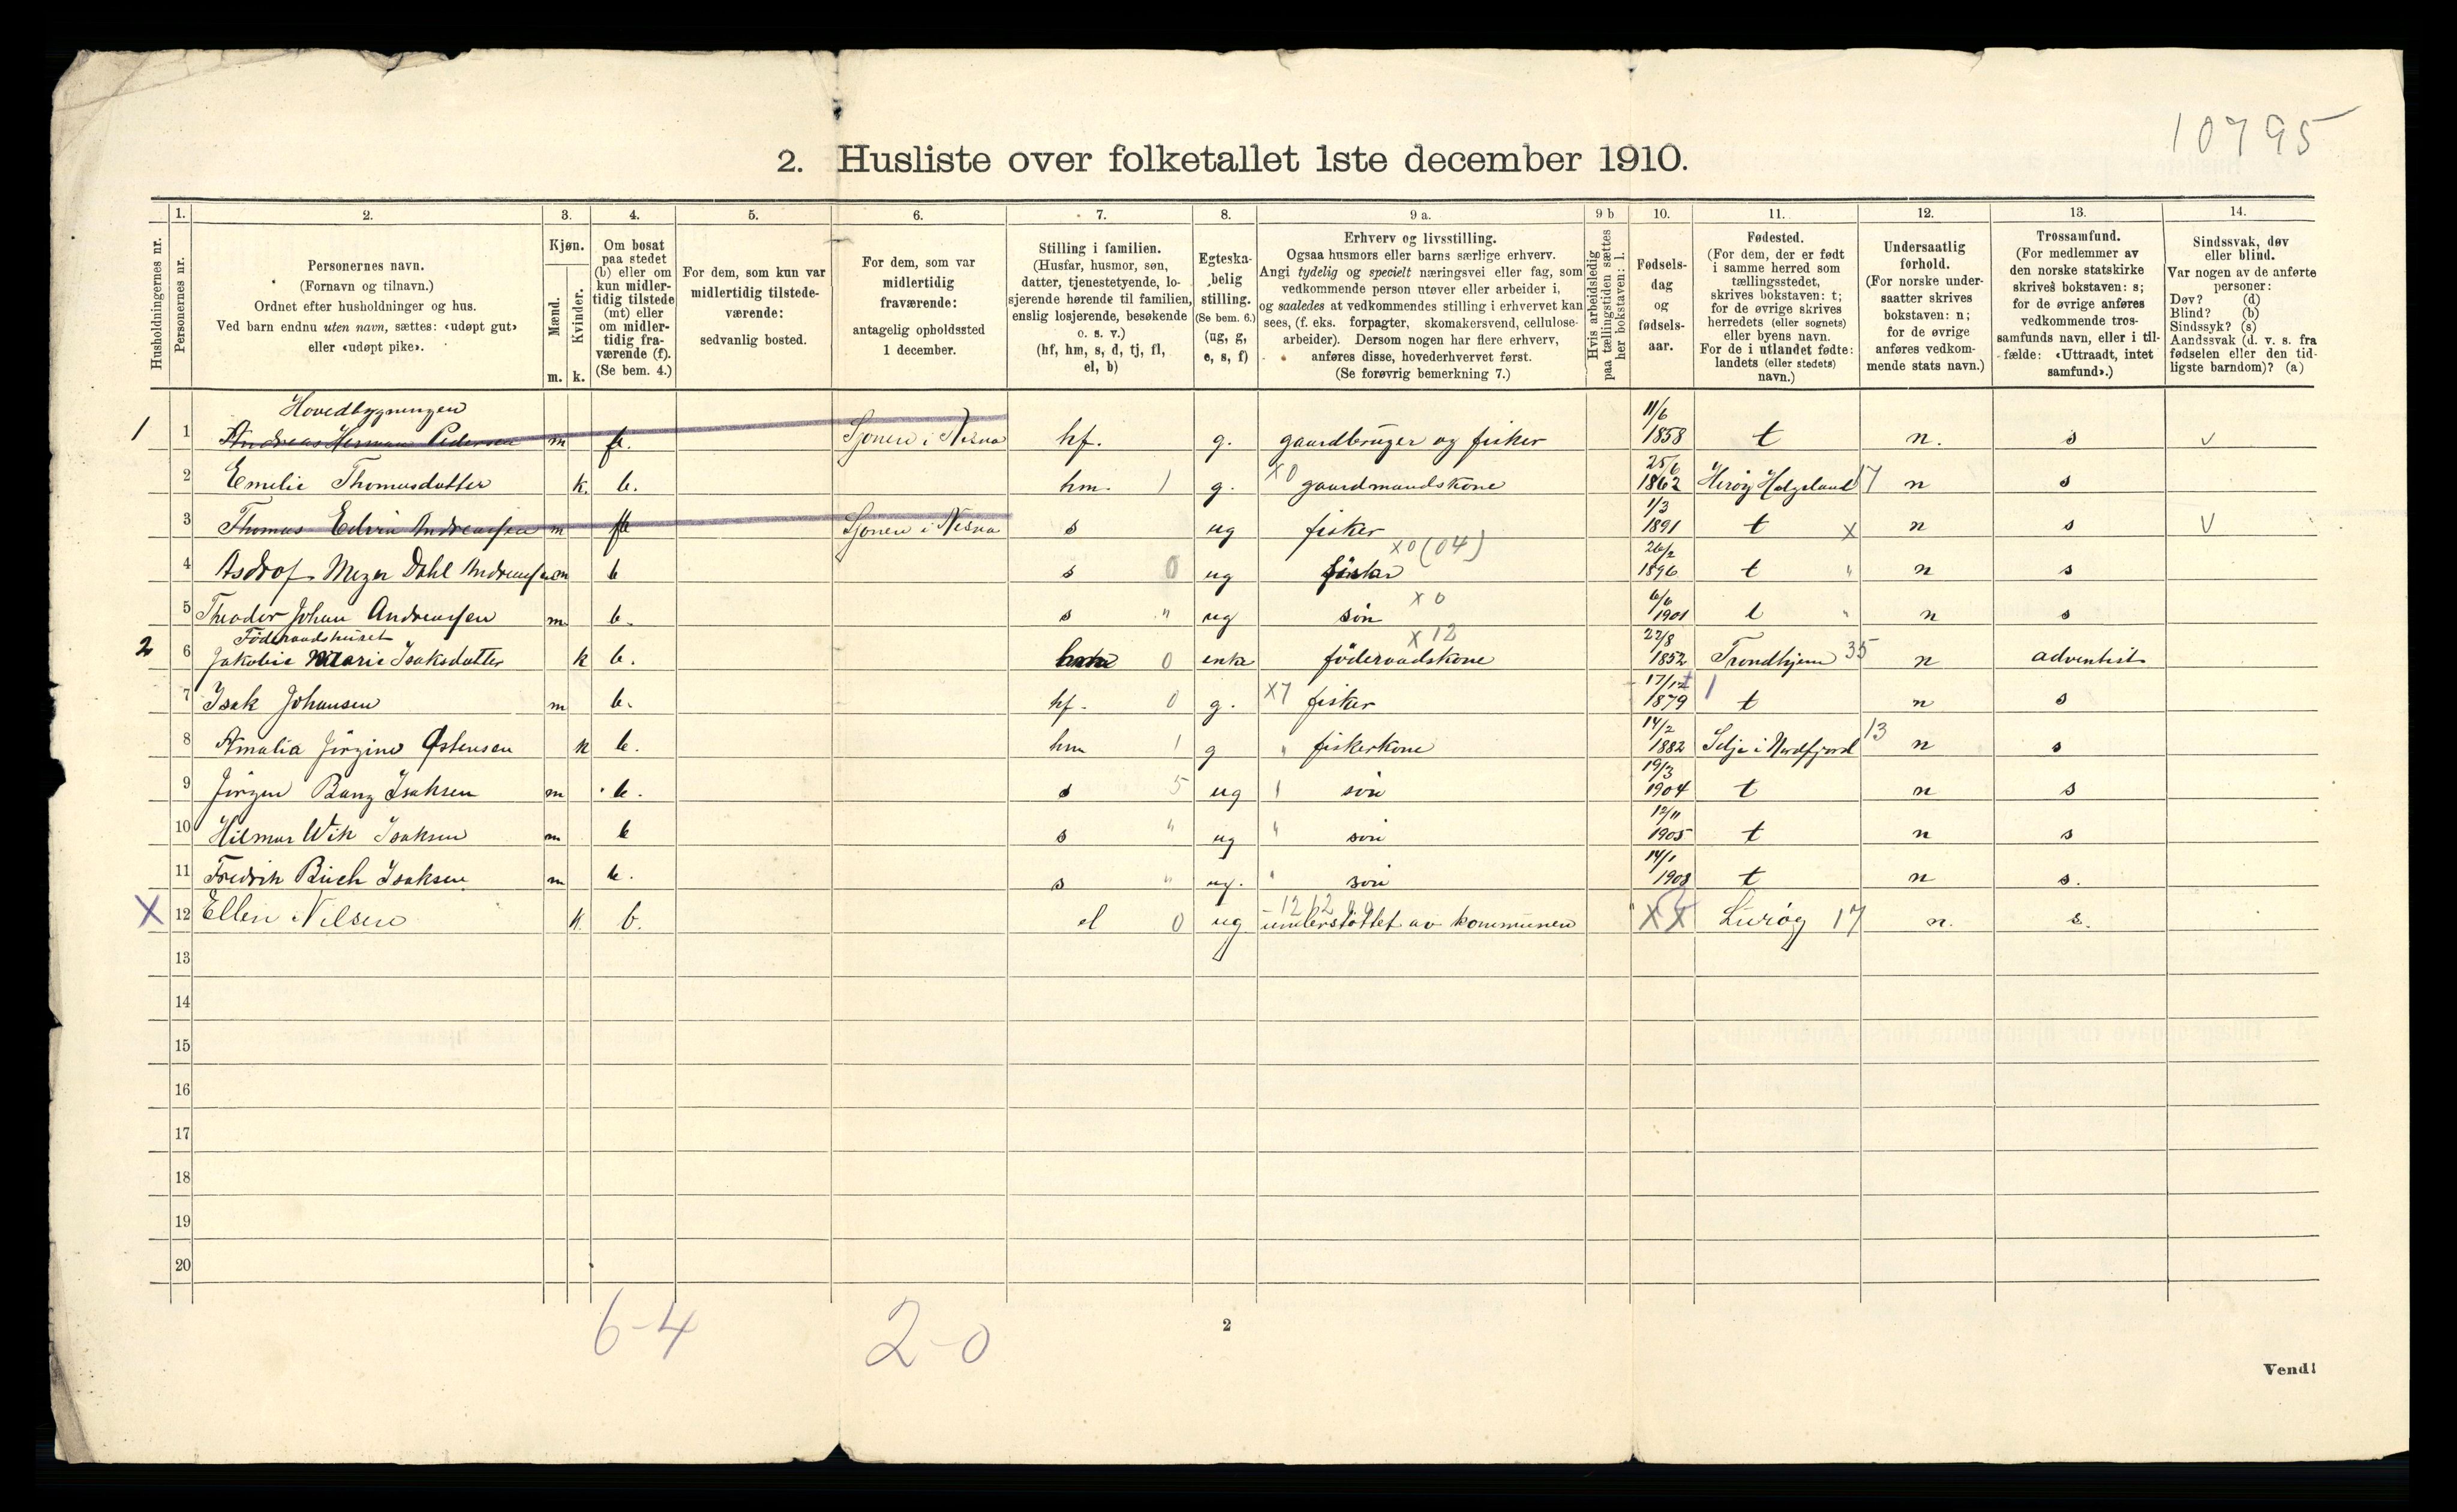 10795
2. Husliste over folketallet 1ste december 1910.
Husholdningernes nr.
1.
Personernes nr.
2.
Personernes navn.
(Fornavn og tilnavn.)
Ordnet efter husholdninger og hus.
Ved barn endnu uten navn, sættes: «udøpt gut»
eller «udøpt pike».
3.
Kjøn.
Mænd.
Kvinder.
m. k.
4.
Om bosat
paa stedet
(b) eller om
kun midler-
tidig tilstede
(mt) eller
om midler-
tidig fra-
værende (f).
(Se bem. 4.)
5.
For dem, som kun var
midlertidig tilstede-
værende:
sedvanlig bosted.
6.
For dem, som var
midlertidig
fraværende:
antagelig opholdssted
1 december.
7.
Stilling i familien.
(Husfar, husmor, søn,
datter, tjenestetyende, lo-
sjerende hørende til familien,
enslig losjerende, besøkende
o. s. v.)
(hf, hm, s, d, tj, fl,
el, b)
8.
Egteska-
belig
stilling.
(Se bem. 6.)
(ug, g,
e, s, f)
9 a.
Erhverv og livsstilling.
Ogsaa husmors eller barns særlige erhverv.
Angi tydelig og specielt næringsvei eller fag, som
vedkommende person utøver eller arbeider i,
og saaledes at vedkommendes stilling i erhvervet kan
sees, (f. eks. forpagter, skomakersvend, cellulose-
arbeider). Dersom nogen har flere erhverv,
anføres disse, hovederhvervet først.
(Se forøvrig bemerkning 7.)
9 b
Hvis arbeidsledig
paa tællingstiden sættes
her bokstaven: l.
10.
Fødsels-
dag
og
fødsels-
aar.
11.
Fødested.
(For dem, der er født
i samme herred som
tællingsstedet,
skrives bokstaven: t;
for de øvrige skrives
herredets (eller sognets)
eller byens navn.
For de i utlandet fødte:
landets (eller stedets)
navn.)
12.
Undersaatlig
forhold.
(For norske under-
saatter skrives
bokstaven: n;
for de øvrige
anføres vedkom-
mende stats navn.)
13.
Trossamfund.
(For medlemmer av
den norske statskirke
skrives bokstaven: s;
for de øvrige anføres
vedkommende tros-
samfunds navn, eller i til-
fælde: «Uttraadt, intet
samfund».)
14.
Sindssvak, døv
eller blind.
Var nogen av de anførte
personer:
Døv? (d)
Blind? (b)
Sindssyk? (s)
Aandssvak (d. v. s. fra
fødselen eller den tid-
ligste barndom)? (a)
Hovedbygningen
1 1 Andreas Herman Pedersen m f. Sjonen i Nesna hf. g. gaardbruger og fisker 11/6 1858 t n. s v
2 Emelie Thomasdatter k. b. hm. 1 g. x0 gaardmandskone 25/6 1862 Herøy Helgeland 17 n s
3 Thomas Edvin Andreassen m f Sjonen i Nesna s ug fisker 1/3 1891 t x n s v
4 Asdrof Mezer Dahl Andreassen m b s 0 ug fisker x0 (04) 26/2 1896 t " n s
5 Theodor Johan Andreassen m b. s " ug søn x0 6/6 1901 t " n s
Føderaadshuset
2 6 Jakobie Marie Isaksdatter k b. 0 enke føderaadskone x12 27/8 1852 Trondhjem 35 n adventist
7 Isak Johansen m b. hf. 0 g. x7 fisker 17/12 1879 1 t n s
8 Amalia Jørgine Østensen k b. hm 1 g " fiskerkone 14/2 1882 Selje i Nordfjord 13 n s
9 Jørgen Bang Isaksen m b. s 5 ug søn 19/3 1904 t n s
10 Hilmar Wik Isaksen m b s " ug " søn 12/11 1905 t n s
11 Fredrik Buch Isaksen m b. s " ug. søn 14/1 1908 t n s.
X 12 Ellen Nilsen k. b. el 0 ug understøttet av kommunen XX Lurøy 17 n. s.
13
14
15
16
17
18
19
20
6-4
2-0
2
Vend!